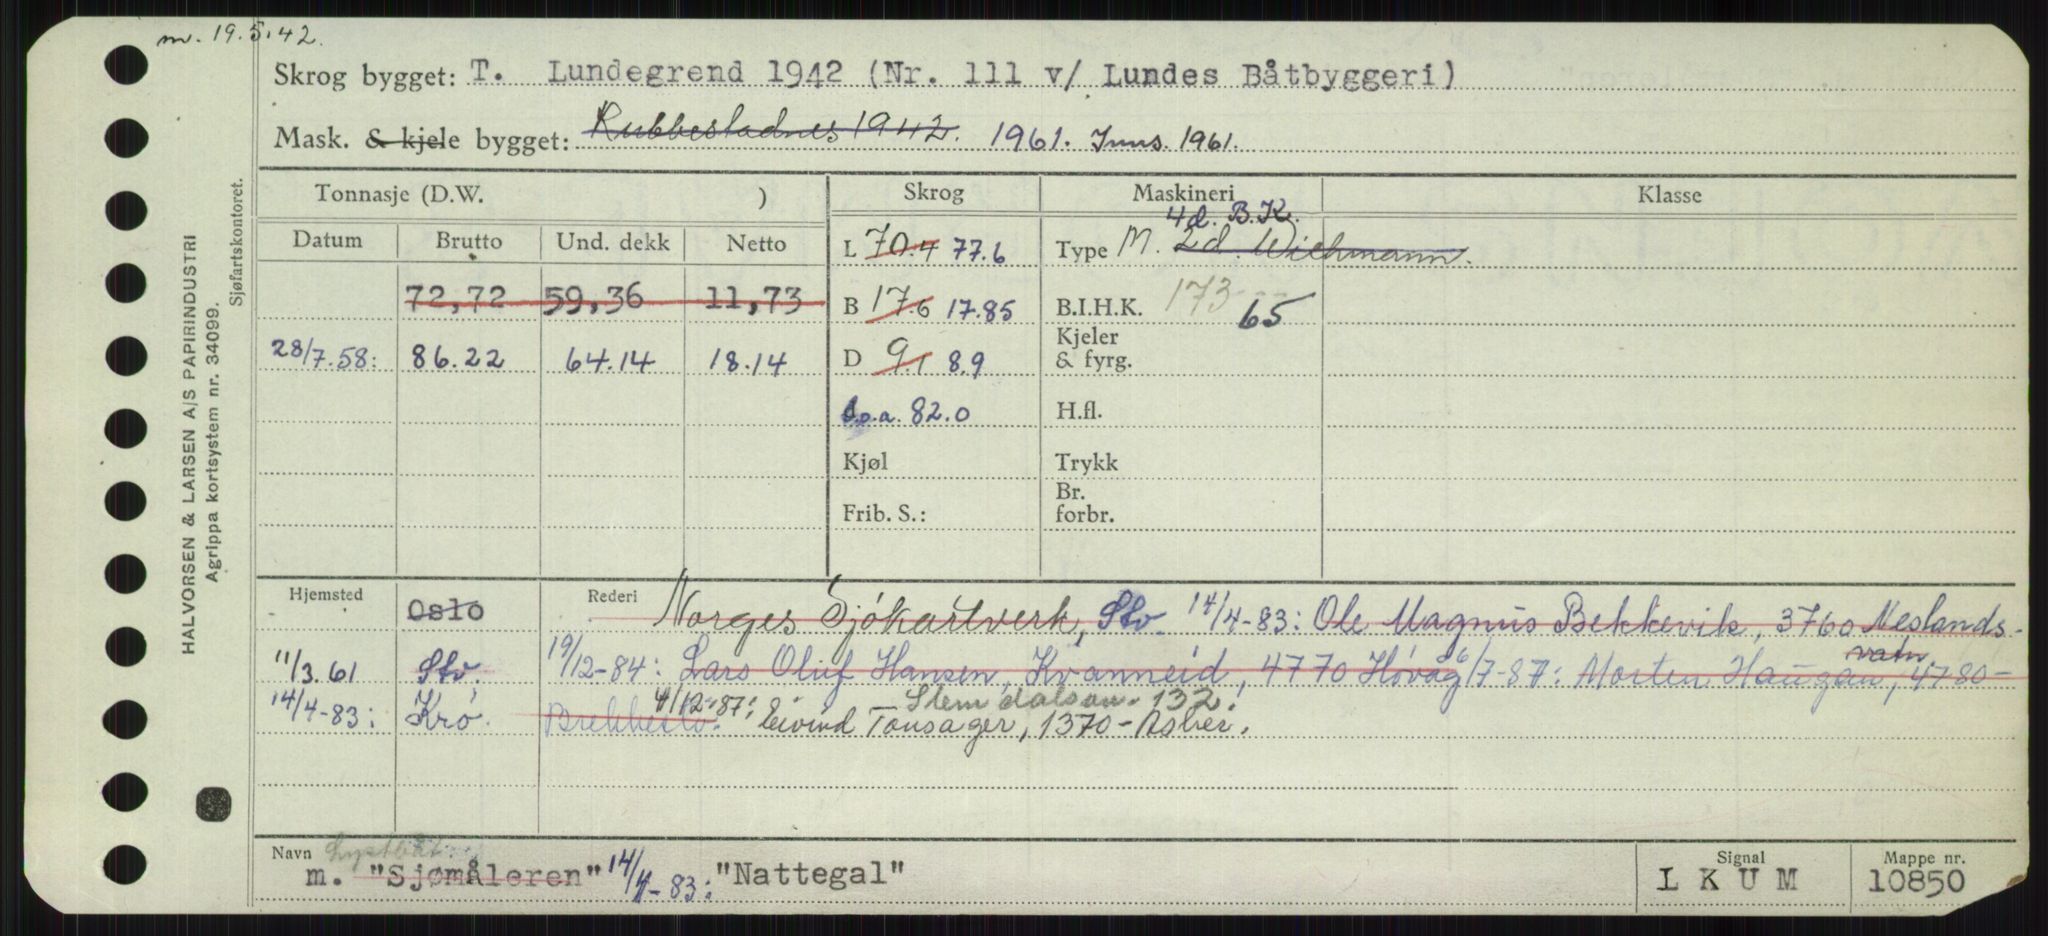 m. 19.5.42.
Skrog bygget: T. Lundegrend 1942 (Nr. 111 v/ Lundes Båtbyggeri)
Mask. & kjele bygget: Rubbestadnes 1942. 1961. Inns. 1961.
Tonnasje (D.W. ) Skrog Maskineri Klasse
4d. B.K.
Datum Brutto Und. dekk Netto L 70.4 77.6 Type M. 2d. Wichmann.
72,72 59,36 11,73 B 17.6 17.85 B.I.H.K. 173 65
28/7.58: 86.22 64.14 18.14 D 9.1 8.9 Kjeler & fyrg.
l.o.a. 82.0 H.fl.
Kjøl Trykk
Frib. S.: Br. forbr.
Hjemsted Oslo Rederi Norges Sjökartverk, Stv. 14/4-83: Ole Magnus Bekkevik, 3760 Neslands-
vatn
11/3.61 Stv. 19/12-84: Lars Oluf Hansen, Kvanneid, 4770 Høvåg 6/7-87: Morten Haugan, 4780-
Stendalsvn. 132,
14/4-83: Krø. Brekkestø. 4/12-87: Eivind Tonsager, 1370-Asker.
HALVORSEN & LARSEN A/S PAPIRINDUSTRI
Agrippa kortsystem nr. 34099.
Sjøfartskontoret.
Lystbåt.
Navn m. "Sjømåleren" 14/4-83: "Nattegal"
Signal L K U M
Mappe nr. 10850